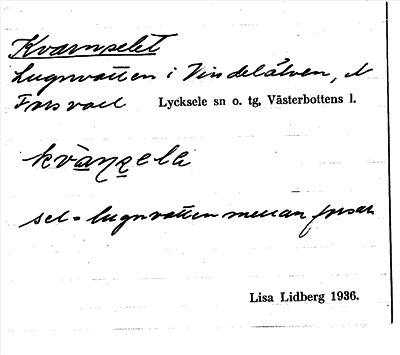 Kvarnselet
Lugnvatten i Vindelälven, N
Forsvall Lycksele sn o. tg, Västerbottens l.
kvàɳsele
sel = lugnvatten mellan forsar
Lisa Lidberg 1936.